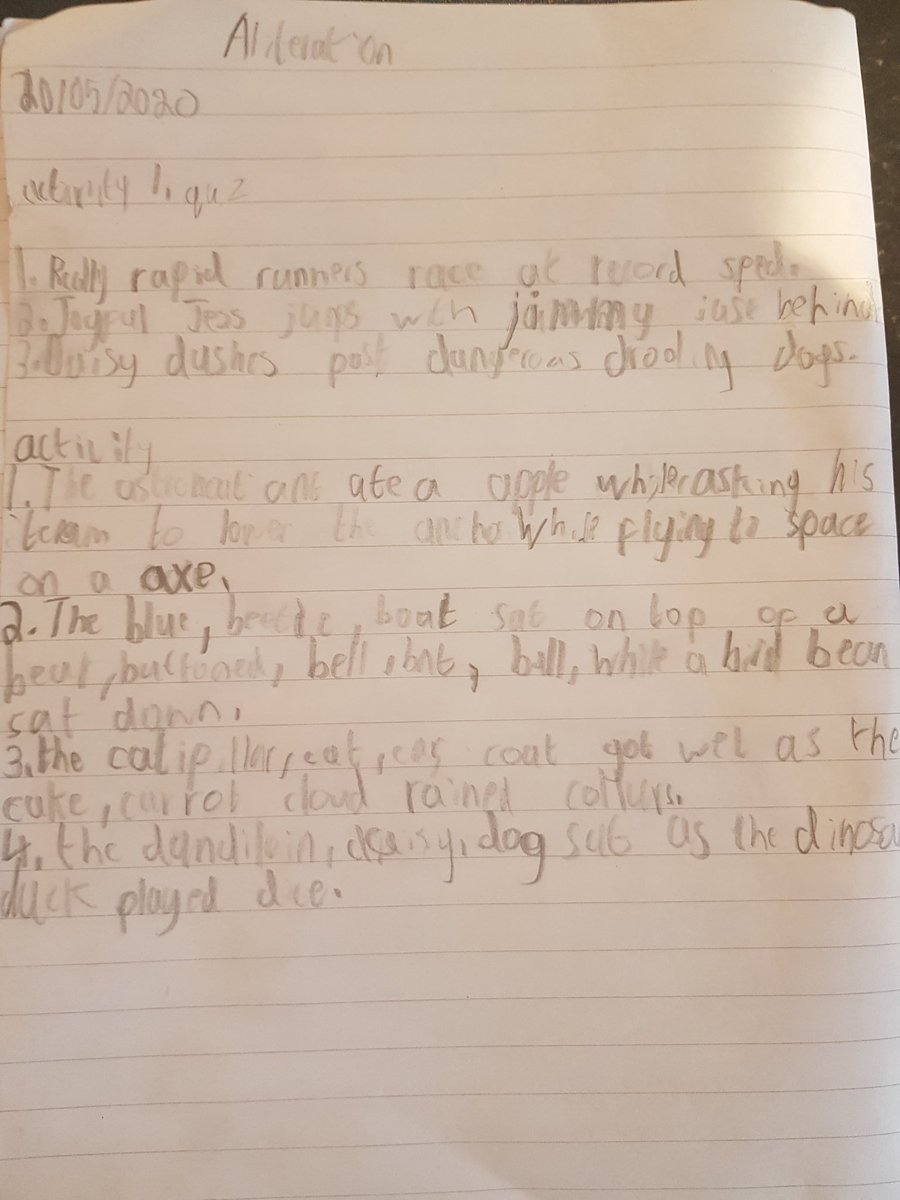 Aliteration
20/05/2020
activity 1. quz
1. Really rapid runners race at record sped.
2. Joyful Jess jumps with jammmy just behind
3. Daisy dashes past dangerous drooling dogs.
activity
1. The astronaut ant ate a apple while asking his
team to lower the ancho while flying to space
on a axe.
2. The blue, beetle, boat sat on top of a
bear, buttoned, bell, bat, ball, while a bird bean
sat down.
3. the catipillar, cat, car coat got wet as the
cake, carrot cloud rained
4. the dandiloin, daisy, dog sat as the dinosa
duck played dice.